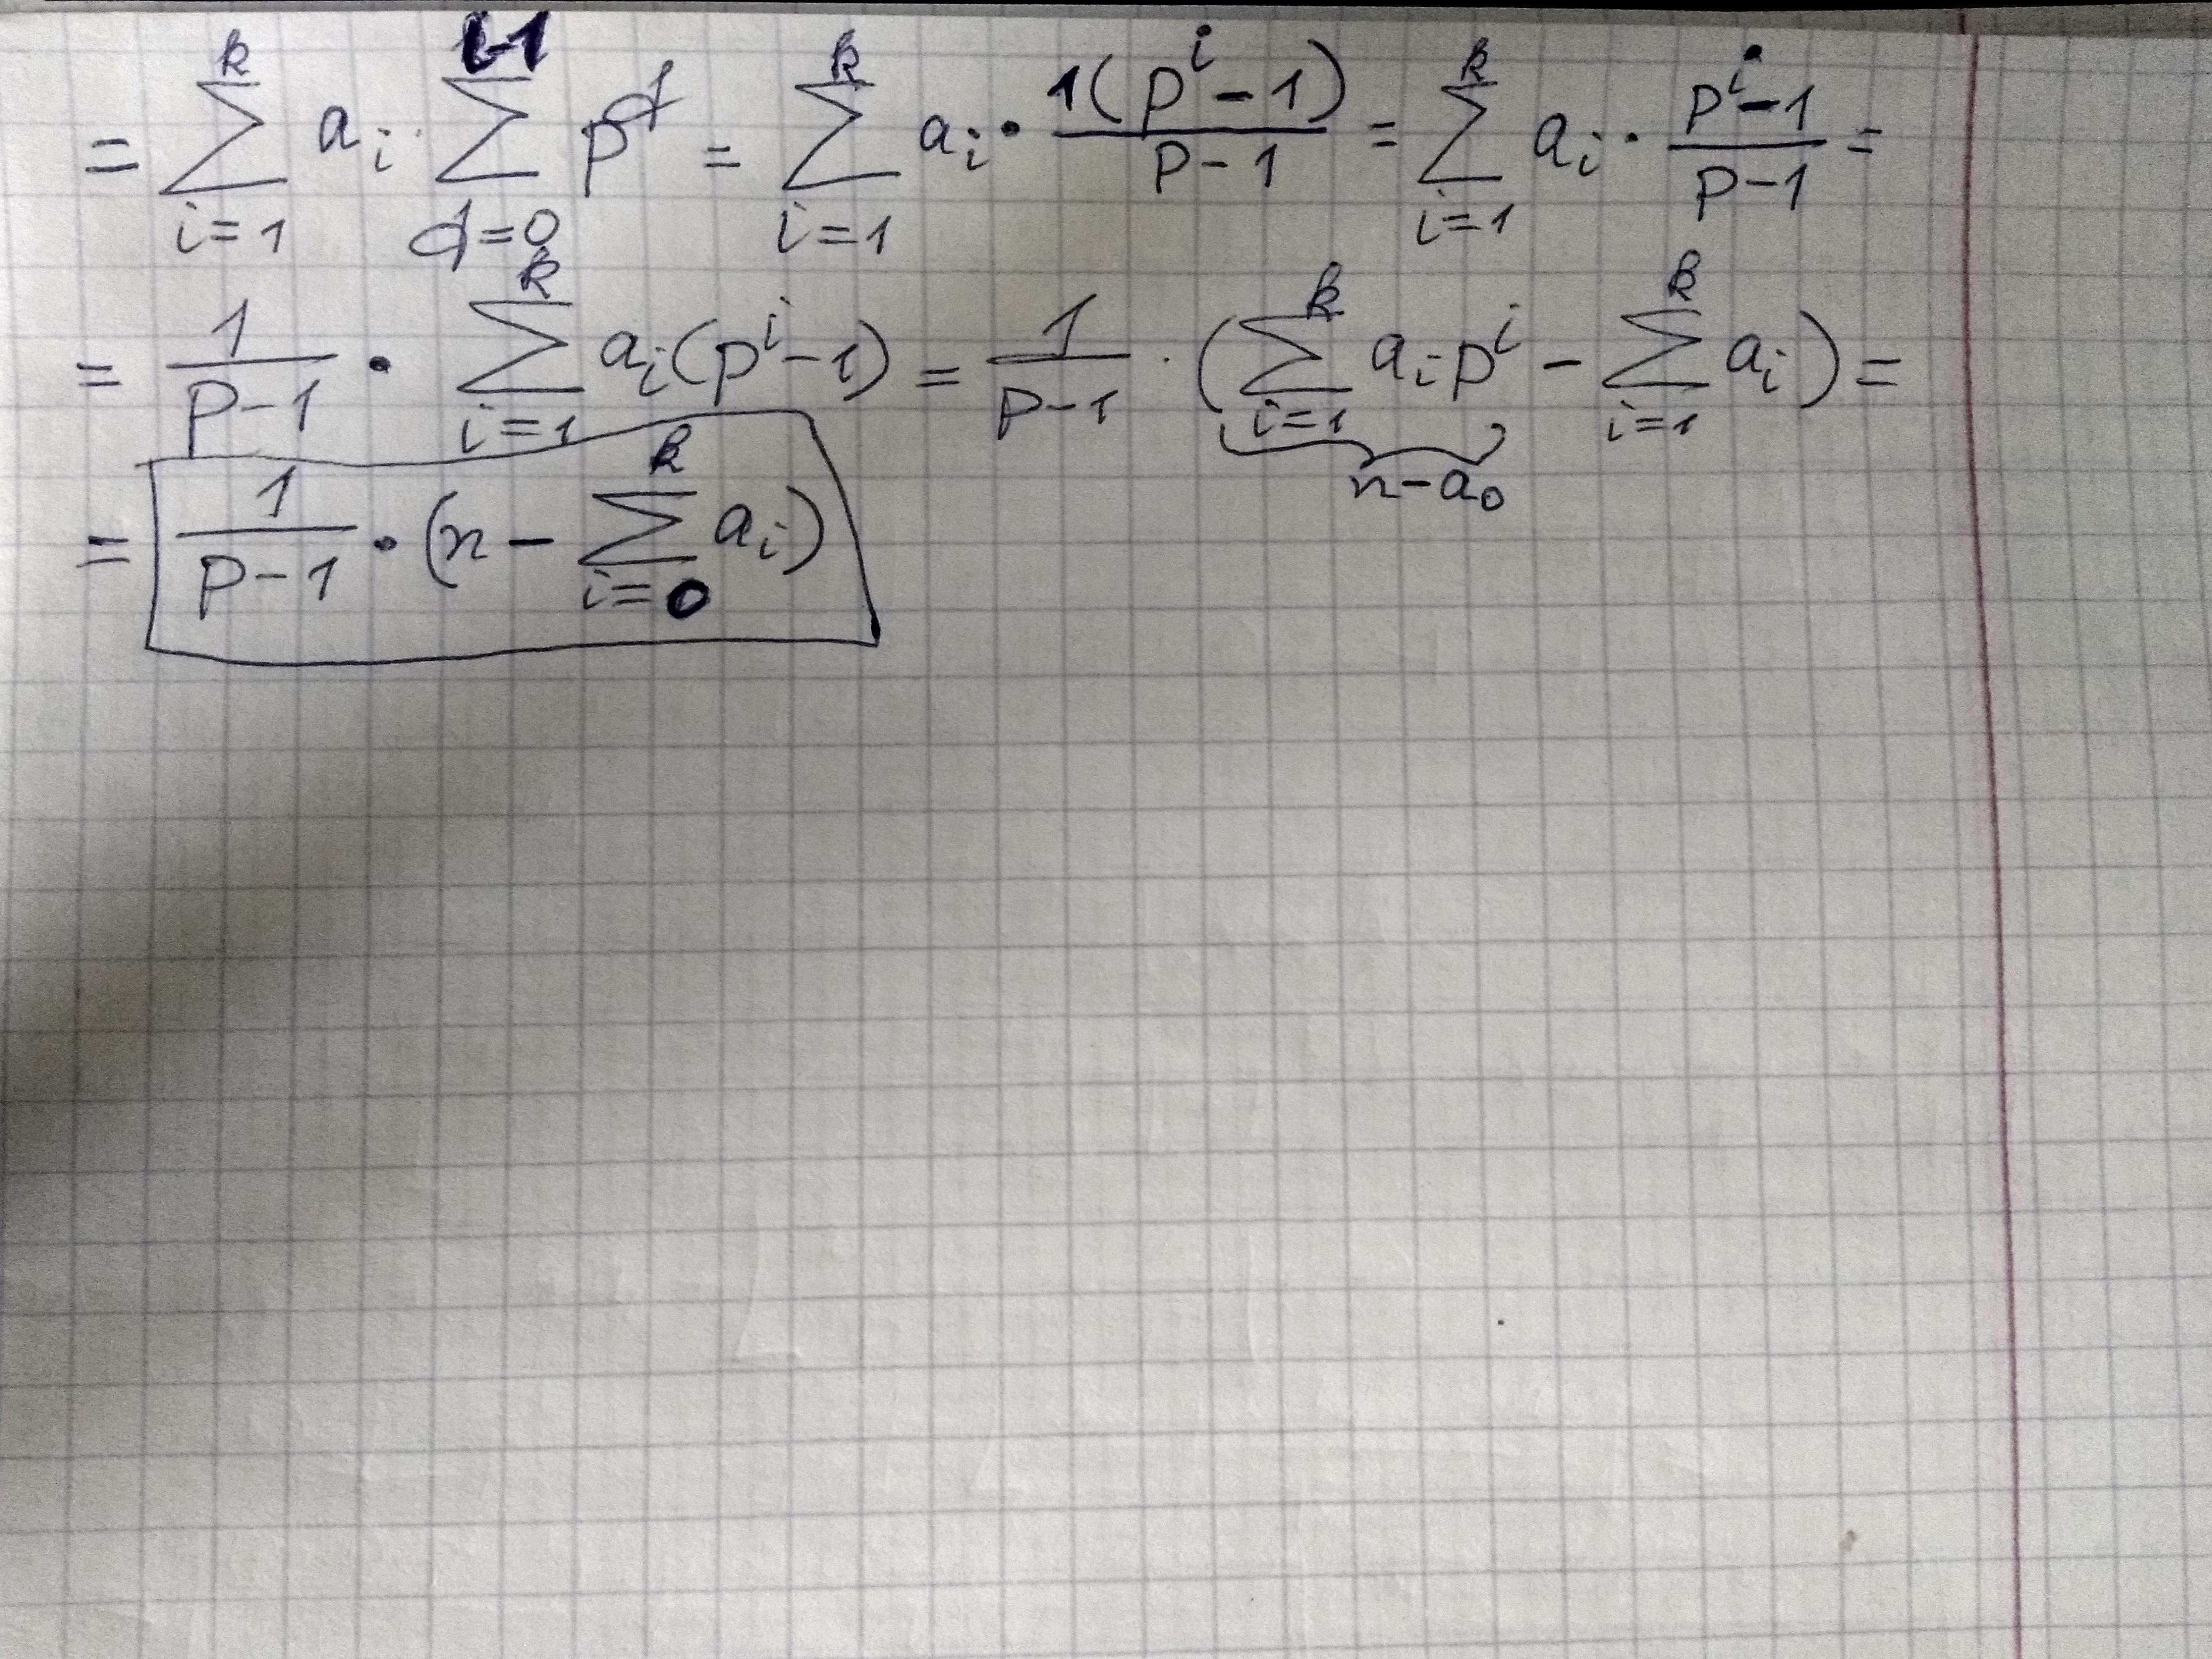 = \sum_{i=1}^{k} a_i \cdot \sum_{d=0}^{i-1} p^d = \sum_{i=1}^{k} a_i \cdot \frac{1(p^i-1)}{p-1} = \sum_{i=1}^{k} a_i \cdot \frac{p^i-1}{p-1} =
= \frac{1}{p-1} \cdot \sum_{i=1}^{k} a_i(p^i-1) = \frac{1}{p-1} \cdot (\underbrace{\sum_{i=1}^{k} a_i p^i}_{n-a_0} - \sum_{i=1}^{k} a_i) =
= \boxed{\frac{1}{p-1} \cdot (n - \sum_{i=0}^{k} a_i)}